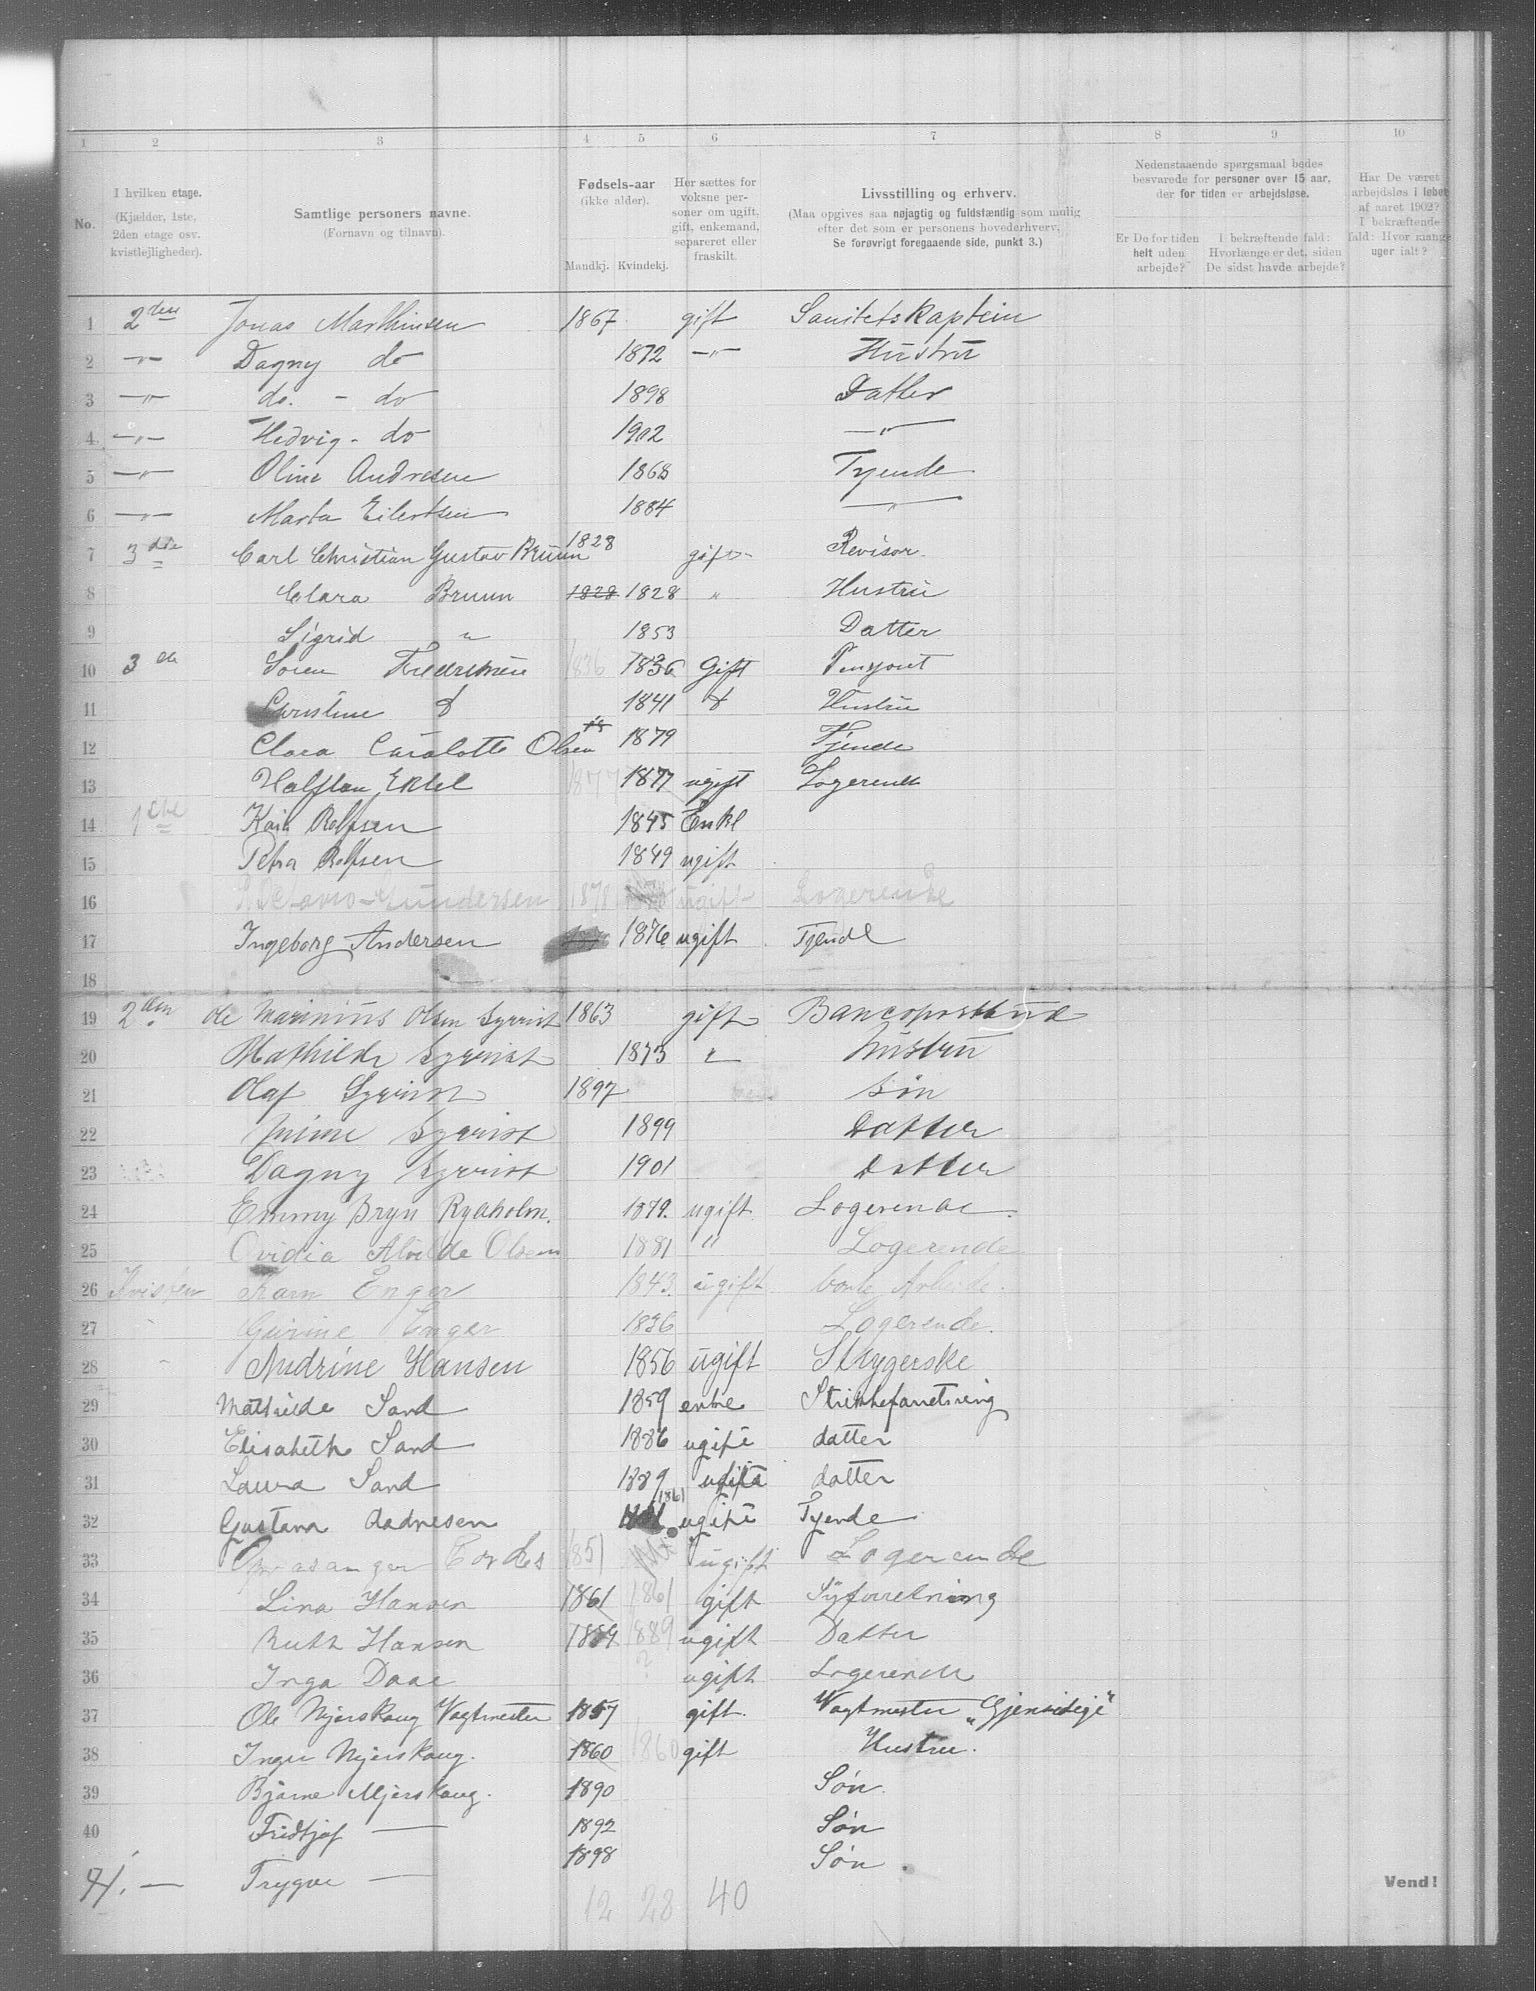 1 2 3 4 5 6 7 8 9 10
No.
I hvilken etage.
(Kjælder, 1ste,
2den etage osv.
kvistlejligheder).
Samtlige personers navne.
(Fornavn og tilnavn).
Fødsels-aar
(ikke alder).
Mandkj. Kvindekj.
Her sættes for
voksne per-
soner om ugift,
gift, enkemand,
separeret eller
fraskilt.
Livsstilling og erhverv.
(Maa opgives saa nøjagtig og fuldstændig som mulig
efter det som er personens hovederhverv.
Se forøvrigt foregaaende side, punkt 3.)
Nedenstaaende spørgsmaal bedes
besvarede for personer over 15 aar,
der for tiden er arbejdsløse.
Er De for tiden
helt uden
arbejde?
I bekræftende fald:
Hvorlænge er det, siden
De sidst havde arbejde?
Har De været
arbejdsløs i løbet
af aaret 1902?
I bekræftende
fald: Hvor mange
uger ialt?
1 2den Jonas Marthinsen 1867 gift Sanitetskaptein
2 -"- Dagny do 1872 -"- Hustru
3 -"- do. - do 1898 Datter
4 -"- Hedvig - do 1902 -"-
5 -"- Oline Andresen 1868 Tyende
6 -"- Marta Eilertsen 1884 -"-
7 3die Carl Christian Gustav Bruun 1828 gift Revisor.
8 Clara Bruun 1828 1828 " Hustru
9 Sigrid " 1853 Datter
10 3de Soren Fredriksen 1836 1836 Gift Pensjonist
11 Christine d 1841 d Hustru
12 Clara Carolotte Olsen 1879 Tjende
13 Halfdan Ektel 1877 1877 ugift Logerende
14 1ste Kari Rolfsen 1845 Enke
15 Petra Rolfsen 1849 ugift
16 Gundersen 1878 ugift Logerende
17 Ingeborg Andersen 1876 ugift Tjende
18
19 2den Ole Marinius Olsen Syvrist 1863 gift Bancopostbud
20 Mathilde Syvrist 1873 " Hustru
21 Olaf Syvrist 1897 Søn
22 Syvrist 1899 Datter
23 Dagny Syvrist 1901 Datter
24 Emmy Bryn Ryaholm. 1879. ugift Logerende.
25 Ovidia Alvilde Olsen 1881 " Logerende
26 Kvisten Karn Enger 1843. ugift borte Arbeide.
27 Gurine Enger 1836 Logerende.
28 Andrine Hansen 1856 ugift Strygerske
29 Mathilde Sand 1859 enke Strikkeforretning
30 Elisabeth Sand 1886 ugift datter
31 Laura Sand 1889 ugift datter
32 Gustava Andresen 1861 ugift Tyende
33 Cordes 1851 ugift Logerende
34 Lina Hansen 1861 1861 gift Syforretning
35 Ruth Hansen 1889 1889 ugift Datter
36 Inga Daae ? ugift Logerende
37 Ole Mjørskaug Vagtmester 1857 gift. Vagtmester "Gjensidige"
38 Inger Mjørskaug. 1860 1860 gift Hustru.
39 Bjarne Mjørskaug. 1890 Søn.
40 Fridtjof — 1892 Søn
41. — Trygve — 1898 Søn.
12 28 40
Vend!